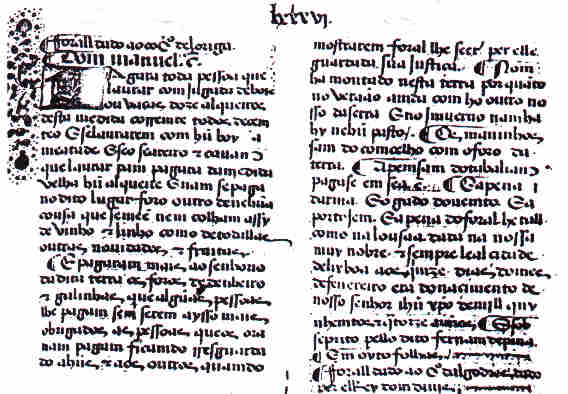 lxxvi.
¶ fforall dado ao co.º de loriga.
¶ Dom manuel .&.
Pagara toda pessoa que
lavrar com julgada de boys
ou vacas. doze alqueires
desta medida corrente todos de cen
teo E se lavrarem com hũ boy a
meatade E seo seareiro & cavam
que lavrar pam pagara da medida
velha hũ alqueire E nam se paga
no dito lugar foro outro de nenhũa
cousa que semeẽ nem colham assy
de vinho & linho como de todallas
outras novidades & fruitas.
¶ E pagaram mais ao senhorio
da dita terra os foros de dinheiro
& galinhas, que alguas pessoas
lhe pagam sem serem a ysso mais
obrigados as pessoas que os ora
nam pagam ficando resguarda
do a hũs & aos outros quando
mostrarem foral lhe seer per elle
guardada sua justiça. ¶ Nom
ha montado nesta terra porquãto
no verão andã com ho outro no
sso da serra E no Inverno nam ha
hy nehũ pasto. ¶ Os maninhos
sam do comcelho com o foro da
terra. ¶ A pemsam do tabaliam
pagase em sea ¶ A pena
darma. E o gado do vento. E a
portagem. E a pena do foral he tall
como na lousaa dada na nossa
muy nobre & sempre leal cidade
de lixboa aos quinze dias do mes
de fevereiro era do nacimento de
nosso senhor ihũ xp̃o de mill qui
nhentos & quatorze annos. ¶ E sob
scprito pello dito fernam de pina
¶ Em oyto folhas
¶ fforall dado ao dalgodres, dado
per elRey dom dinis